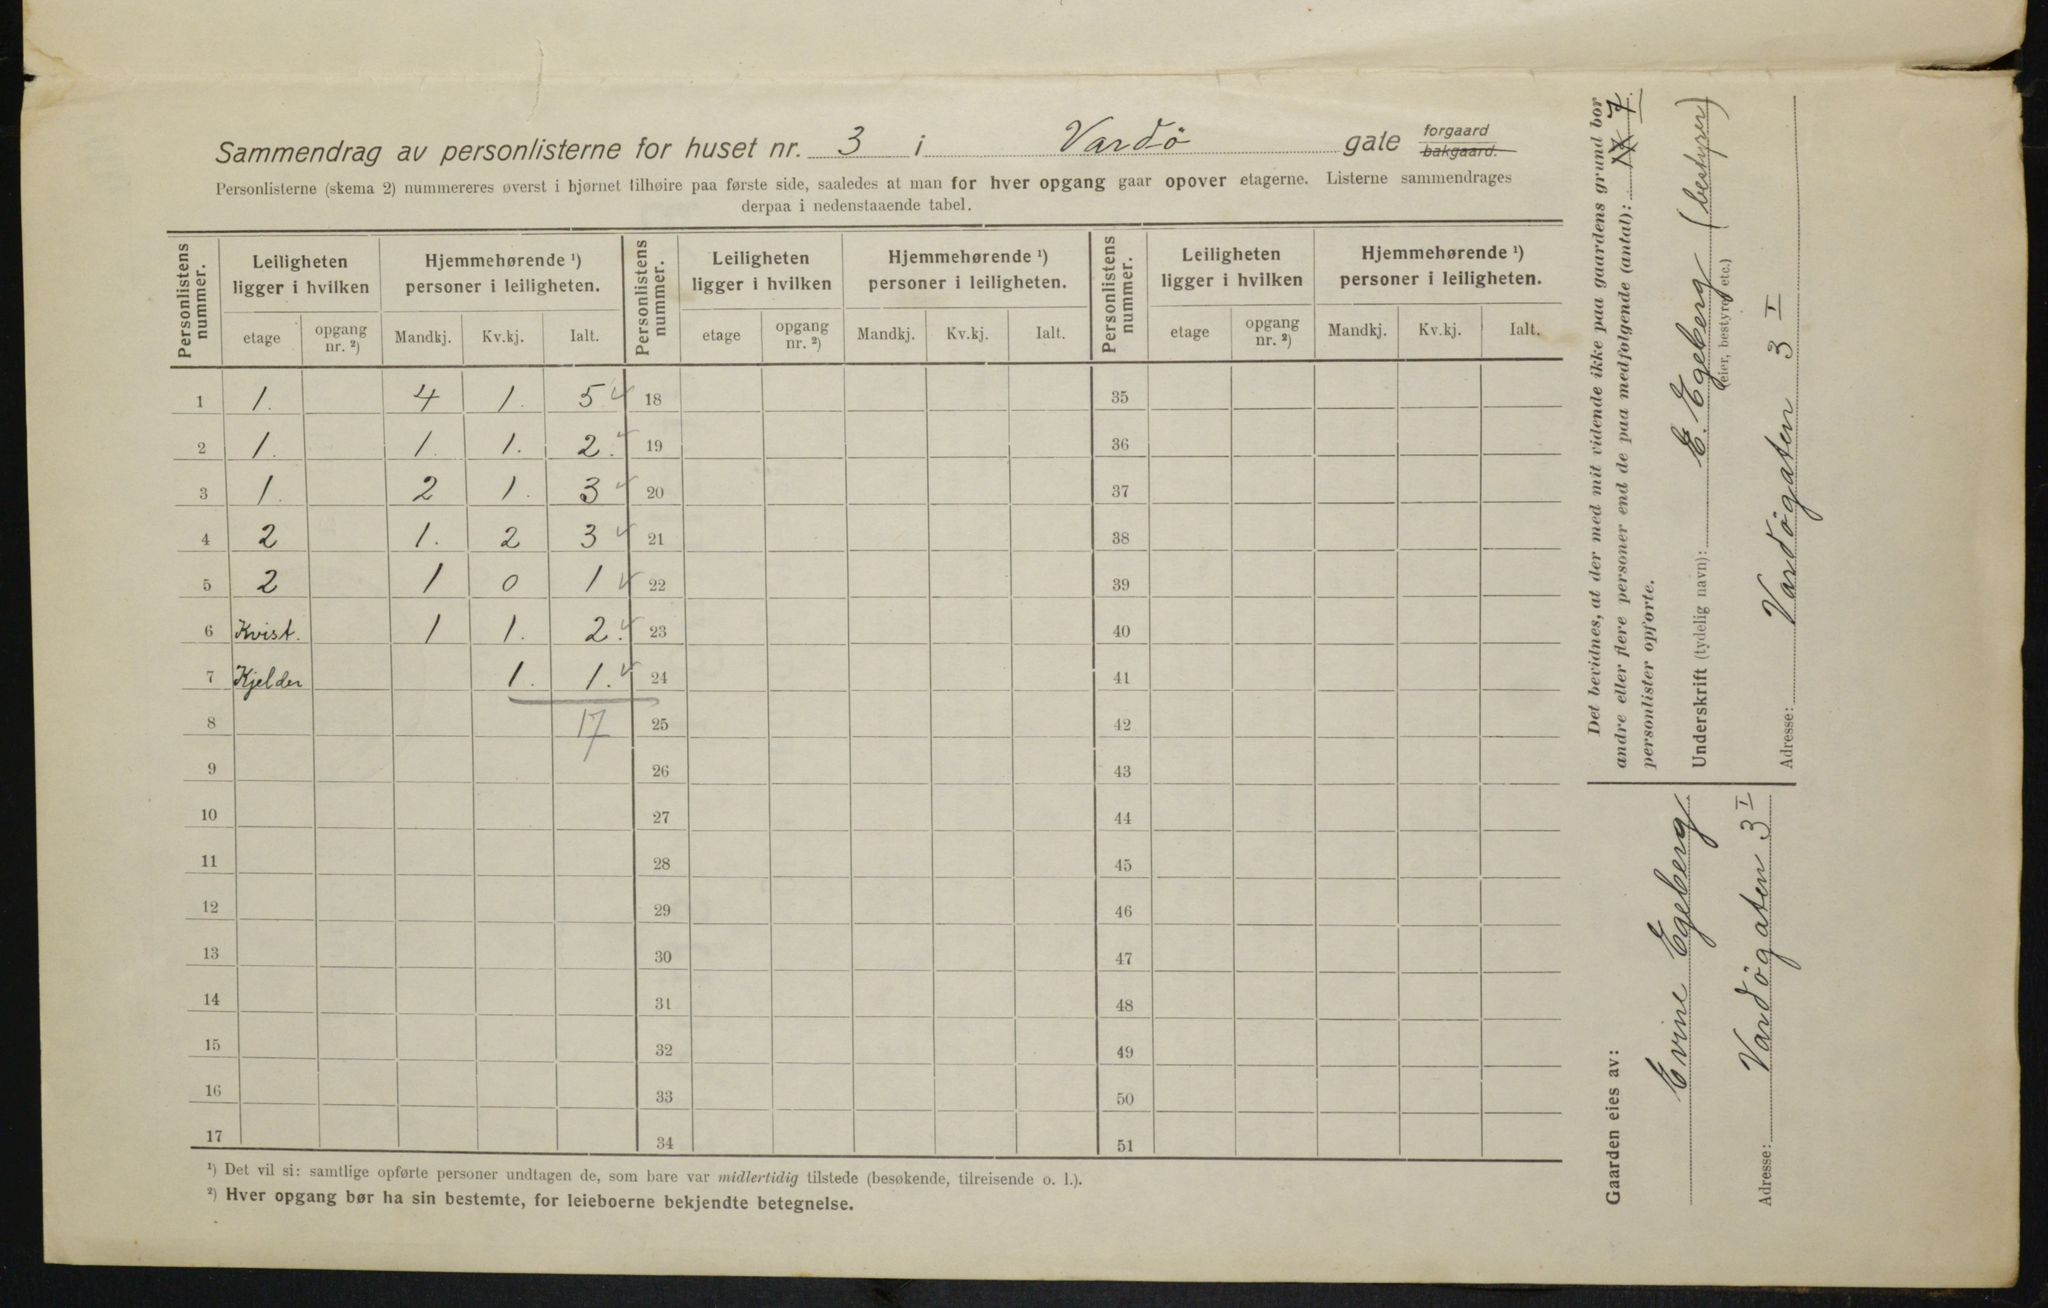 Sammendrag av personlisterne for huset nr. 3 i Vardö gate forgaard bakgaard.
Personlisterne (skema 2) nummereres øverst i hjørnet tilhøire paa første side, saaledes at man for hver opgang gaar opover etagerne. Listerne sammendrages
derpaa i nedenstaaende tabel.
Personlistens nummer. Leiligheten ligger i hvilken Hjemmehørende ¹) personer i leiligheten. Personlistens nummer. Leiligheten ligger i hvilken Hjemmehørende ¹) personer i leiligheten. Personlistens nummer. Leiligheten ligger i hvilken Hjemmehørende ¹) personer i leiligheten.
etage opgang nr. ²) Mandkj. Kv.kj. Ialt. etage opgang nr. ²) Mandkj. Kv.kj. Ialt. etage opgang nr. ²) Mandkj. Kv.kj. Ialt.
1 1. 4 1. 5 18 35
2 1. 1. 1. 2. 19 36
3 1. 2 1. 3 20 37
4 2 1. 2 3 21 38
5 2 1 0 1 22 39
6 Kvist. 1 1. 2. 23 40
7 Kjelder 1. 1. 24 41
8 17 25 42
9 26 43
10 27 44
11 28 45
12 29 46
13 30 47
14 31 48
15 32 49
16 33 50
17 34 51
¹) Det vil si: samtlige opførte personer undtagen de, som bare var midlertidig tilstede (besøkende, tilreisende o. l.).
²) Hver opgang bør ha sin bestemte, for leieboerne bekjendte betegnelse.
Det bevidnes, at der med mit vidende ikke paa gaardens grund bor
andre eller flere personer end de paa medfølgende (antal): 17 7.
personlister opførte.
Underskrift (tydelig navn): E. Egeberg (bestyrer)
(eier, bestyrer etc.)
Adresse: Vardögaten 3 I
Gaarden eies av:
Evine Egeberg
Adresse: Vardögaten 3 I